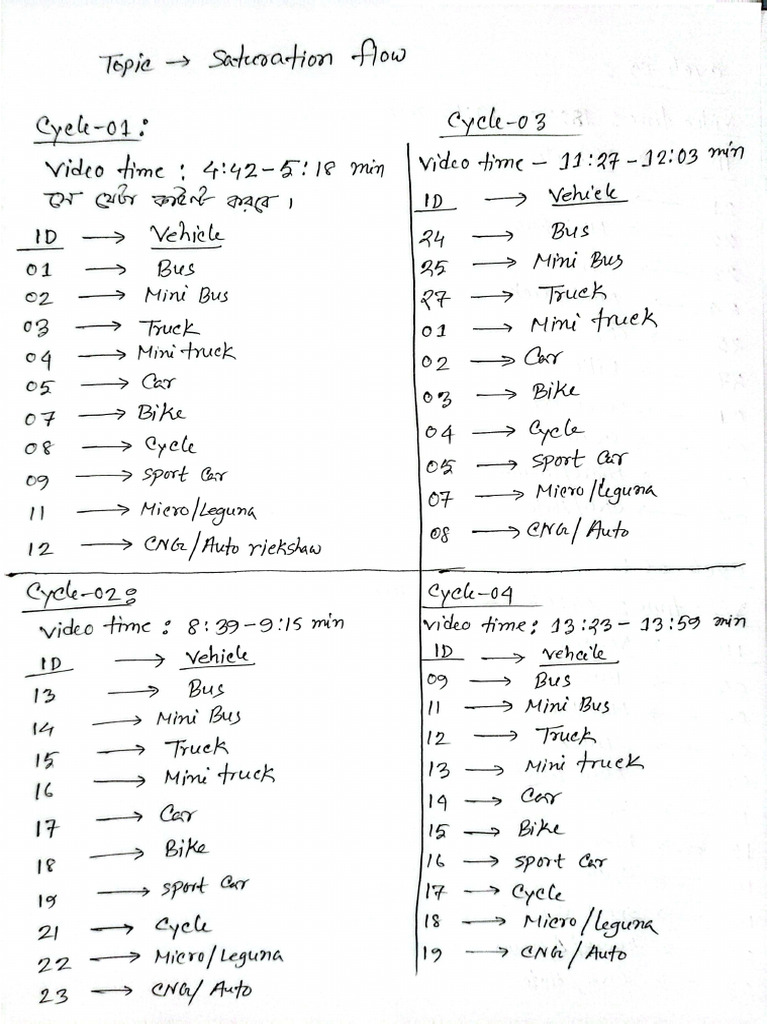 Topic → Saturation flow
Cycle-01:
Video time : 4:42-5:18 min
যে যেটা কাউন্ট করবে।
ID → Vehicle
01 → Bus
02 → Mini Bus
03 → Truck
04 → Mini truck
05 → Car
07 → Bike
08 → Cycle
09 → Sport Car
11 → Micro/Leguna
12 → CNG/Auto rickshaw
Cycle-02:
Video time : 8:39-9:15 min
ID → Vehicle
13 → Bus
14 → Mini Bus
15 → Truck
16 → Mini truck
17 → Car
18 → Bike
19 → Sport Car
21 → Cycle
22 → Micro/Leguna
23 → CNG/Auto
Cycle-03
Video time - 11:27-12:03 min
ID → Vehicle
24 → Bus
25 → Mini Bus
27 → Truck
01 → Mini truck
02 → Car
03 → Bike
04 → Cycle
05 → Sport Car
07 → Micro/Leguna
08 → CNG/Auto
Cycle-04
Video time: 13:23-13:59 min
ID → Vehcile
09 → Bus
11 → Mini Bus
12 → Truck
13 → Mini truck
14 → Car
15 → Bike
16 → Sport Car
17 → Cycle
18 → Micro/Leguna
19 → CNG/Auto